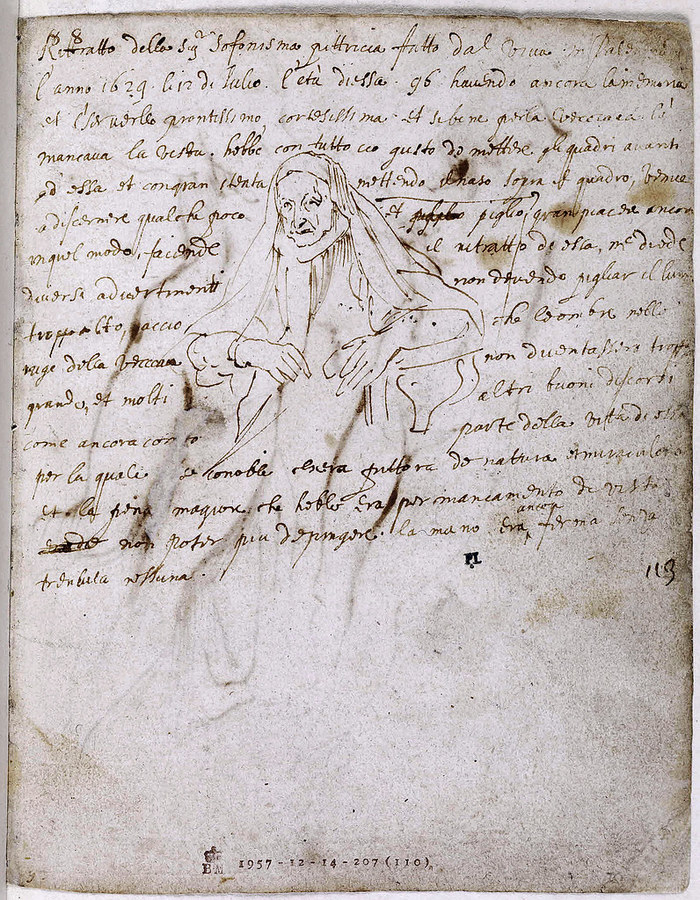 88
Rittratto della Sig.ra Sofonisma pittricia fatto dal vivo in Palermo
l'anno 1629. li 12 di Julio. l'età di essa. 96 havendo ancora la memoria
et il serverlo prontissimo, cortesissima. et sebene per la vecciaia li
mancava la vista. hebbe con tutto cio gusto de mettere gli quadri avanti
ad essa et con gran stenta mettendo il naso sopra il quadro, venne
a discernere qualche poco et piglio gran piacere ancora
in quel modo, facendo il ritratto de essa, me diede
diversi advertimenti non devendo pigliar il lume
troppo alto, accio che le ombre nelle
ruge della vecciaia non diventassero troppo
grande, et molti altri buoni discorsi
come ancora conto parte della vita di essa
per la quale se conobbe ch'era pittora de natura et miraculosa
et la pena magior che hebbe era per mancamento di vista
non poter piu depinger. la mano era ancora ferma senza
tremula nessuna.
113
BM 1957-12-14-207(110)